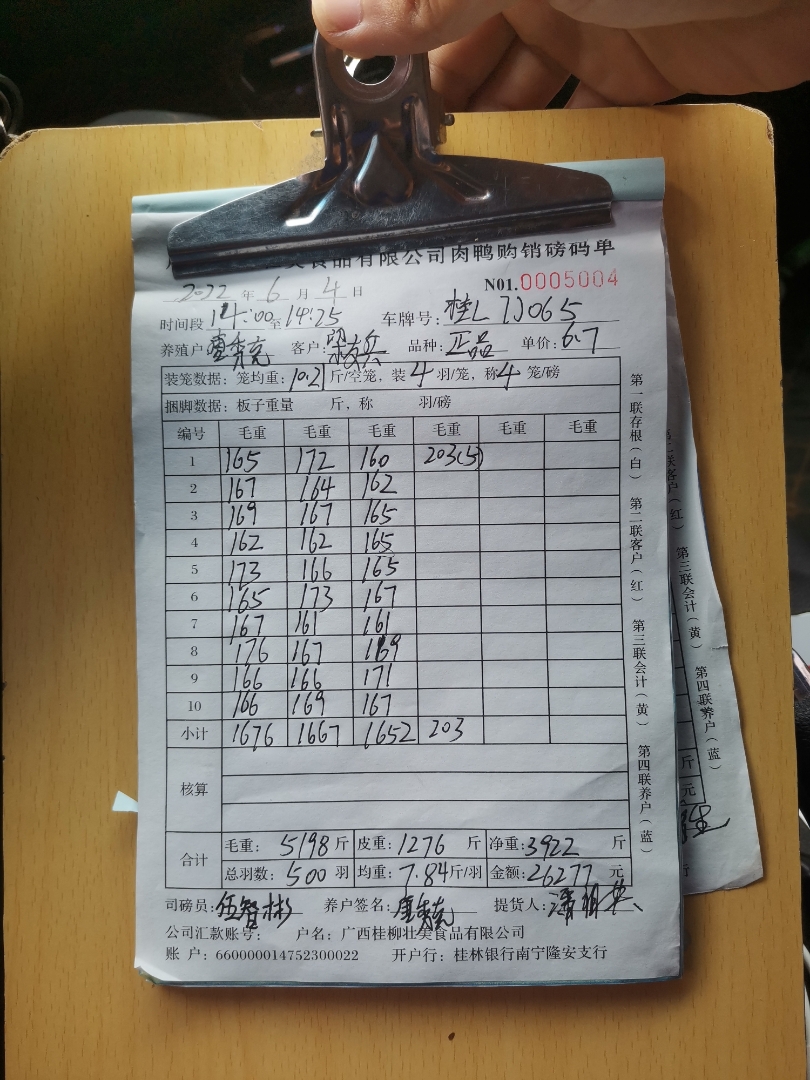 美食品有限公司肉鸭购销磅码单
2022 年 6 月 4 日 N01.0005004
时间段 14:00 至 14:25 车牌号: 桂L
养殖户 客户: 品种: 正品 单价: 6.7
装笼数据: 笼均重: 10.21 斤/空笼, 装 4 羽/笼, 称 4 笼/磅
捆脚数据: 板子重量 斤, 称 羽/磅
编号 毛重 毛重 毛重 毛重 毛重 毛重
1 165 172 160 203(5)
2 167 164 162
3 169 167 165
4 162 162 165
5 173 166 165
6 165 173 167
7 167 161 161
8 176 167 169
9 166 166 171
10 166 169 167
小计 1676 1667 1652 203
核算
合计 毛重: 5198 斤 皮重: 1276 斤 净重: 3922 斤
总羽数: 500 羽 均重: 7.84 斤/羽 金额: 26277 元
司磅员: 伍智彬 养户签名: 提货人:
公司汇款账号: 户名: 广西桂柳壮美食品有限公司
账 户: 660000014752300022 开户行: 桂林银行南宁隆安支行
第一联存根(白) 第二联客户(红) 第三联会计(黄) 第四联养户(蓝)
第三联会计(黄) 第四联养户(蓝)
斤
元